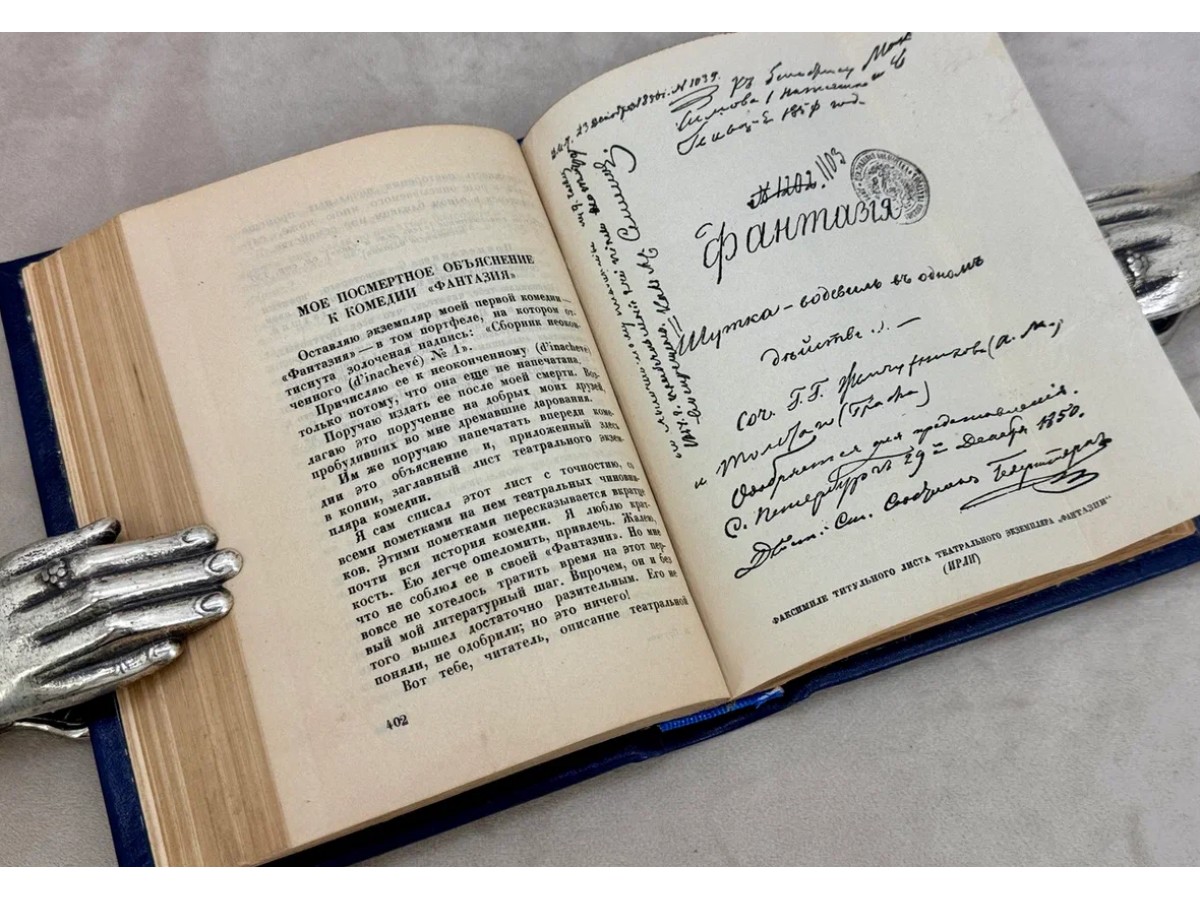 МОЕ ПОСМЕРТНОЕ ОБЪЯСНЕНИЕ
К КОМЕДИИ «ФАНТАЗИЯ»
Оставляю экземпляр моей первой комедии—
«Фантазия» — в том портфеле, на котором от-
тиснута золоченая надпись: «Сборник неокон-
ченного (d'inachevé) № 1».
Причисляю ее к неоконченному (d'inachevé)
только потому, что она еще не напечатана.
Поручаю издать ее после моей смерти. Воз-
лагаю это поручение на добрых моих друзей,
пробудивших во мне дремавшие дарования.
Им же поручаю напечатать впереди коме-
дии это объяснение и, приложенный здесь
в копии, заглавный лист театрального экзем-
пляра комедии.
Я сам списал этот лист с точностию, со
всеми пометками на нем театральных чиновни-
ков. Этими пометками пересказывается вкратце
почти вся история комедии. Я люблю крат-
кость. Ею легче ошеломить, привлечь. Жалею,
что не соблюл ее в своей «Фантазии». Но мне
вовсе не хотелось тратить время на этот пер-
вый мой литературный шаг. Впрочем, он и без
того вышел достаточно разительным. Его не
поняли, не одобрили; но это ничего!
Вот тебе, читатель, описание театральной
402
23 Декабря 1850г. N 1039.
Къ бенефису Мак
симова 1
№ 1202. 1103
Фантазія
Шутка-водевиль въ одномъ
дѣйствіи.—
Соч. Г.Г. Жемчужникова (А. М.)
и Толстаго (Графа)
Одобряется для представленія.
С. Петербургъ 29го Декабря 1850.
Дѣйст. Ст. Совѣтникъ Гедерштернъ
ФАКСИМИЛЕ ТИТУЛЬНОГО ЛИСТА ТЕАТРАЛЬНОГО ЭКЗЕМПЛЯРА „ФАНТАЗИИ“
(ИРЛИ)